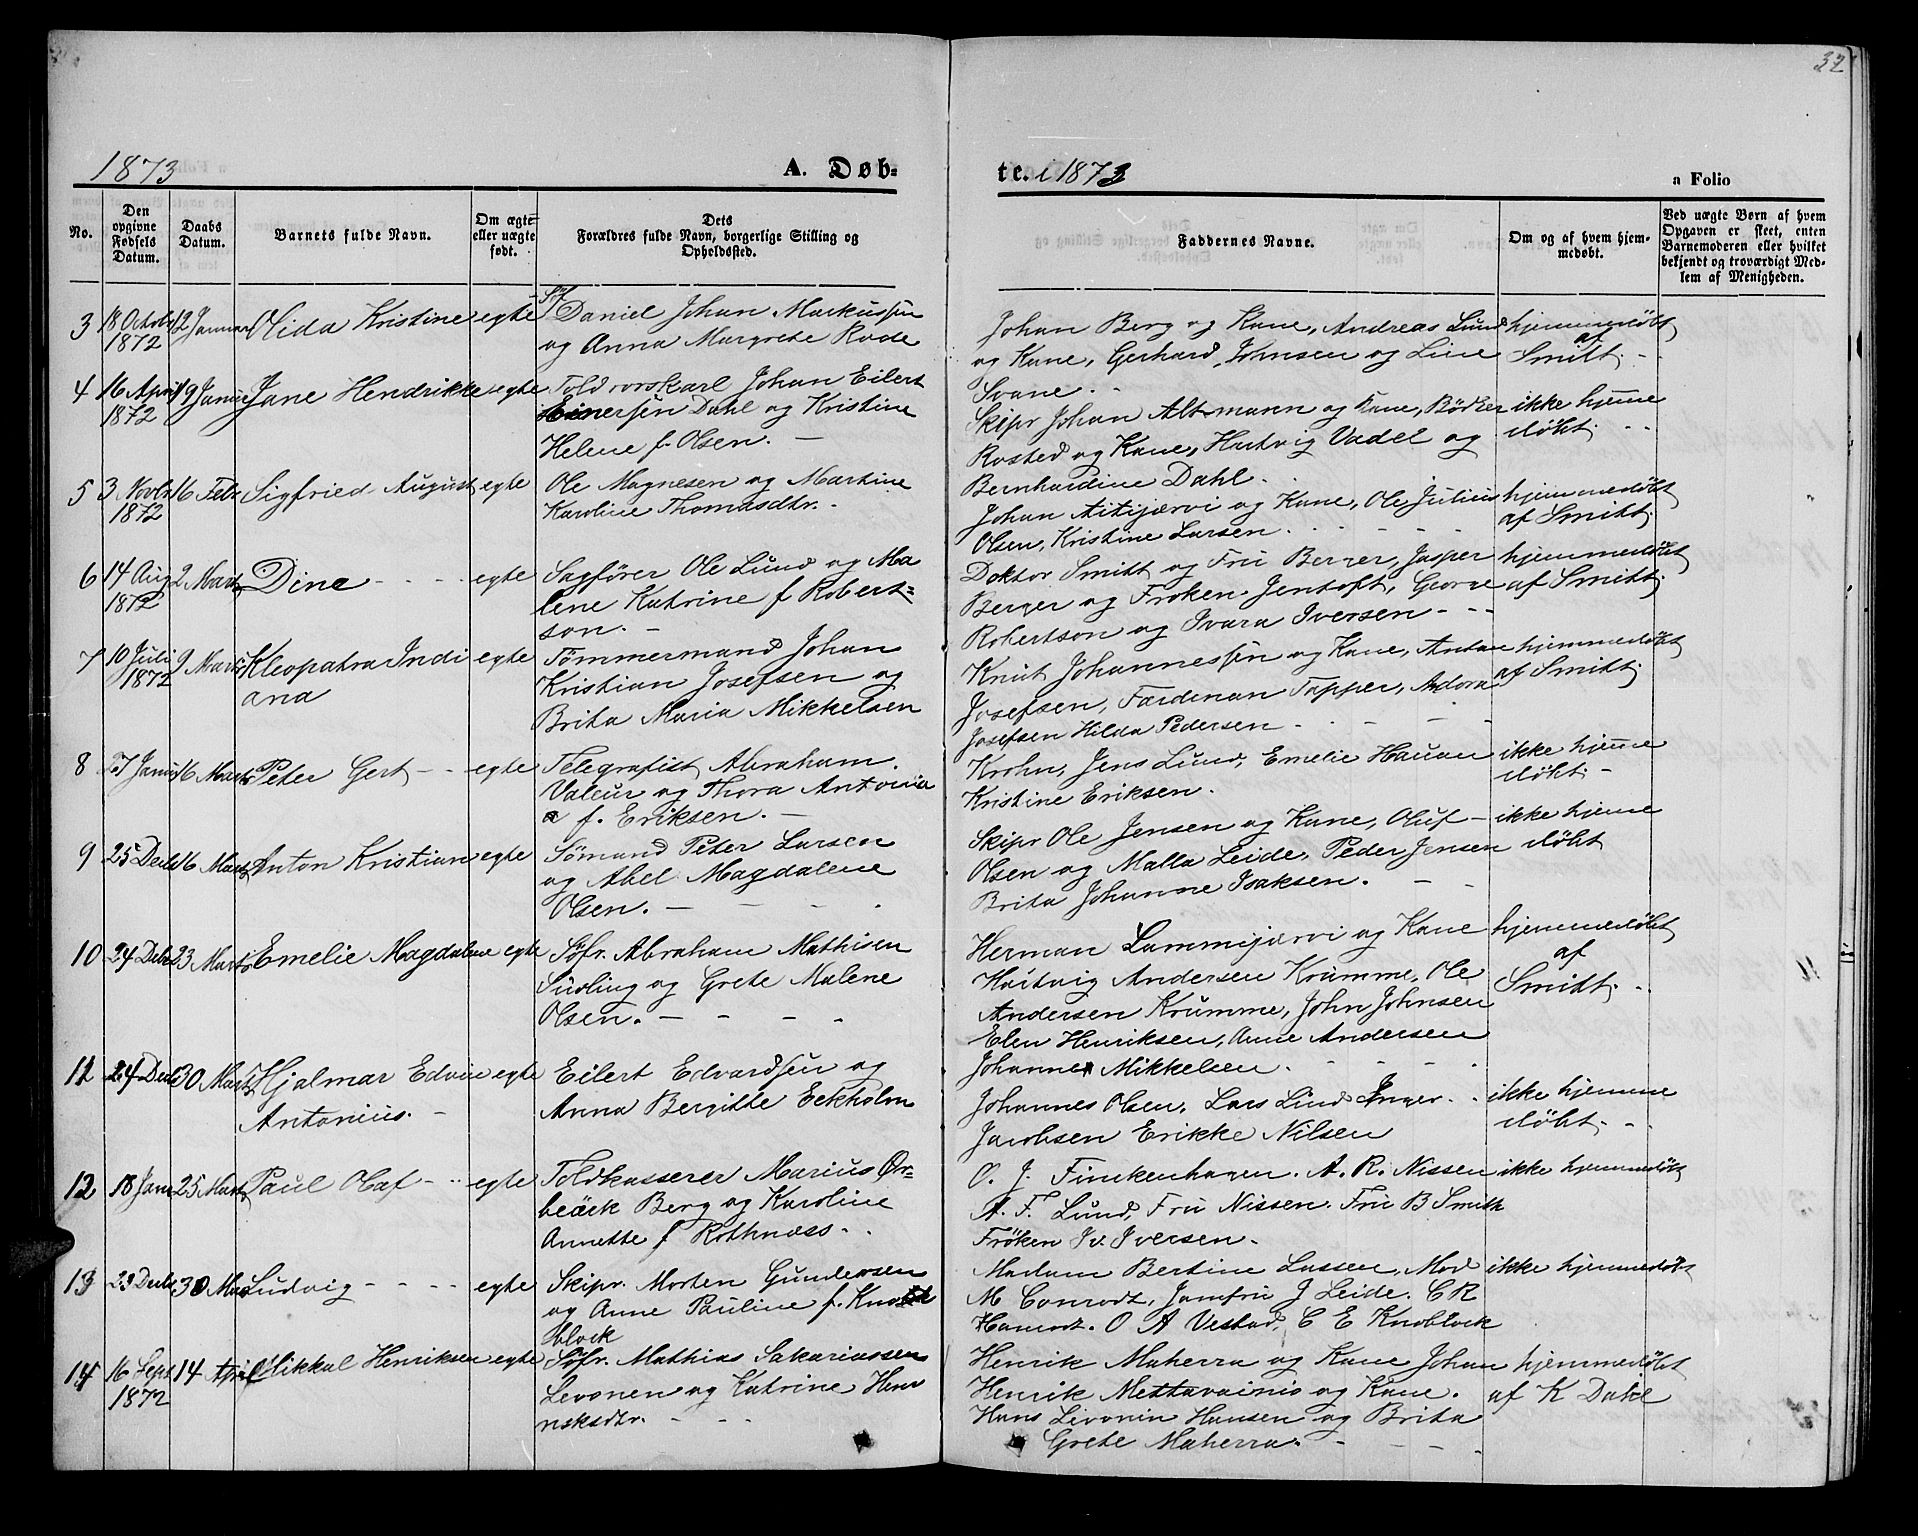 32
1873
A. Døb-
te. i 1873
a Folio
No.
Den opgivne Fødsels Datum.
Daabs Datum.
Barnets fulde Navn.
Om ægte eller uægte født.
Dets Forældres fulde Navn, borgerlige Stilling og Opholdssted.
Faddernes Navne.
Om og af hvem hjemmedøbt.
Ved uægte Børn af hvem Opgaven er skeet, enten Barnemoderen eller hvilket bekjendt og troværdigt Medlem af Menigheden.
3 18 Octob 12 Januar Olida Kristine egte Daniel Johan Markussen
1872 og Anna Margrete Rode
Johan Berg og Kone, Andreas Lund hjemmedøbt
og Kone, Gerhard Johnsen og Line af Smitt. -
Svane. -
4 16 April 19 Janua Jane Hendrikke egte Toldrorskarl Johan Eilert
1872 Einersen Dahl og Kristine
Helene f. Olsen. -
Skipr Johan Altmann og Kone, Bødker ikke hjemme
Rosted og Kone, Hartvig Vadel og døbt. - -
Bernhardine Dahl.
5 3 Novbr 16 Febr Sigfried August egte Ole Magnesen og Martine
1872 Karoline Thomasdtr. -
Johan Aitijærvi og Kone, Ole Julius hjemmedøbt
Olsen, Kristine Larsen. af Smitt.
6 14 Aug 2 Marts Dina - - - egte Sagfører Ole Lund og Ma
1872 lene Katrine f Robert-
son. -
Doktor Smitt og Fru Berger, Jasper hjemmedøbt
Berger og Frøken Jentoft, George af Smitt.
Robertson og Ivara Iversen - - -
7 10 Juli 9 Marts Kleopatra Indi egte Tømmermand Johan
1872 ana Kristian Josefsen og
Brita Maria Mikkelsen
Knut Johannessen og Kone, Anton hjemmedøbt
Josefsen, Ferdinan Tapper, Andora af Smitt.
Josefsen Hilda Pedersen - - -
8 Janu 16 Marts Peter Gert - - egte Telegrafist Abraham
Valeur og Thora Antonia
f. Eriksen. -
Krohn, Jens Lund, Emelie Hauan ikke hjemme
Kristine Eriksen. døbt. -
9 25 Decb 16 Marts Anton Kristian egte Sømand Peter Larsen
og Abel Magdalene
Olsen. - - - -
Skipr Ole Jensen og Kone, Oluf - ikke hjemme
Olsen og Malla Leide, Peder Jensen døbt
Brita Johanne Isaksen. - -
10 24 Debr 23 Marts Emelie Magdalene egte Søfr. Abraham Mathisen
Siuling og Grete Malene
Olsen. - - - -
Herman Lammijærvi og Kone hjemmedøbt
Hartvig Andersen Krumme, Ole af
Andersen Krumme, John Johnsen Smitt. -
Elen Henriksen, Anne Andersen
Johannes Mikkelsen. - - -
11 24 Decb 30 Marts Hjalmar Edvin egte Eilert Edvardsen og
Antonius. - Anna Bergitte Eckholm
Johannes Olsen, Lars Lind Inger - ikke hjemme
Jacobsen Erikke Nilsen døbt - -
12 18 Janu 25 Marts Paul Olaf - - egte Toldkasserer Marius Ør-
beck Berg og Karoline
Annette f Rothnæss. -
O. J. Finckenhagen. A. R. Nissen ikke hjemmedøbt
A. F. Lund, Fru Nissen. Fru B Smith
Frøken Iv. Iversen.
13 23 Decb 30 Mar Ludvig - - - egte Skipr. Morten Gundersen
og Anne Pauline f. Kno
block
Madam Bertine Lassen, Mad ikke hjemmedøbt
M Conrodt, Jomfru J Leide. C R
Hanrodt. O A Vestad, C E Knoblock
14 16 Sept 14 April Mikkal Henriksen egte Søfr. Mathias Sakariassen
1872 Levonen og Katrine Hen
riksdtr. - - -
Henrik Maherra og Kone Johan hjemmedøbt
Henrik Mettavainio og Kone. af K Dahl
Hans Livonin Hansen og Brita
Grete Maherra. - - - -